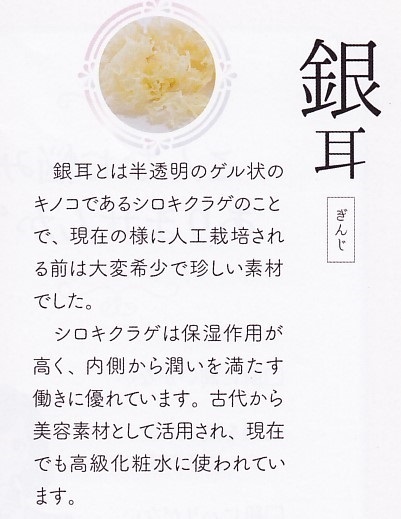 銀耳
ぎんじ
　銀耳とは半透明のゲル状の
キノコであるシロキクラゲのこと
で、現在の様に人工栽培され
る前は大変希少で珍しい素材
でした。
　シロキクラゲは保湿作用が
高く、内側から潤いを満たす
働きに優れています。古代から
美容素材として活用され、現在
でも高級化粧水に使われてい
ます。